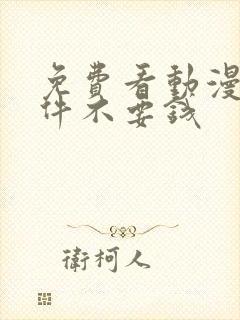 免費看動漫
件不要錢
衛柯人